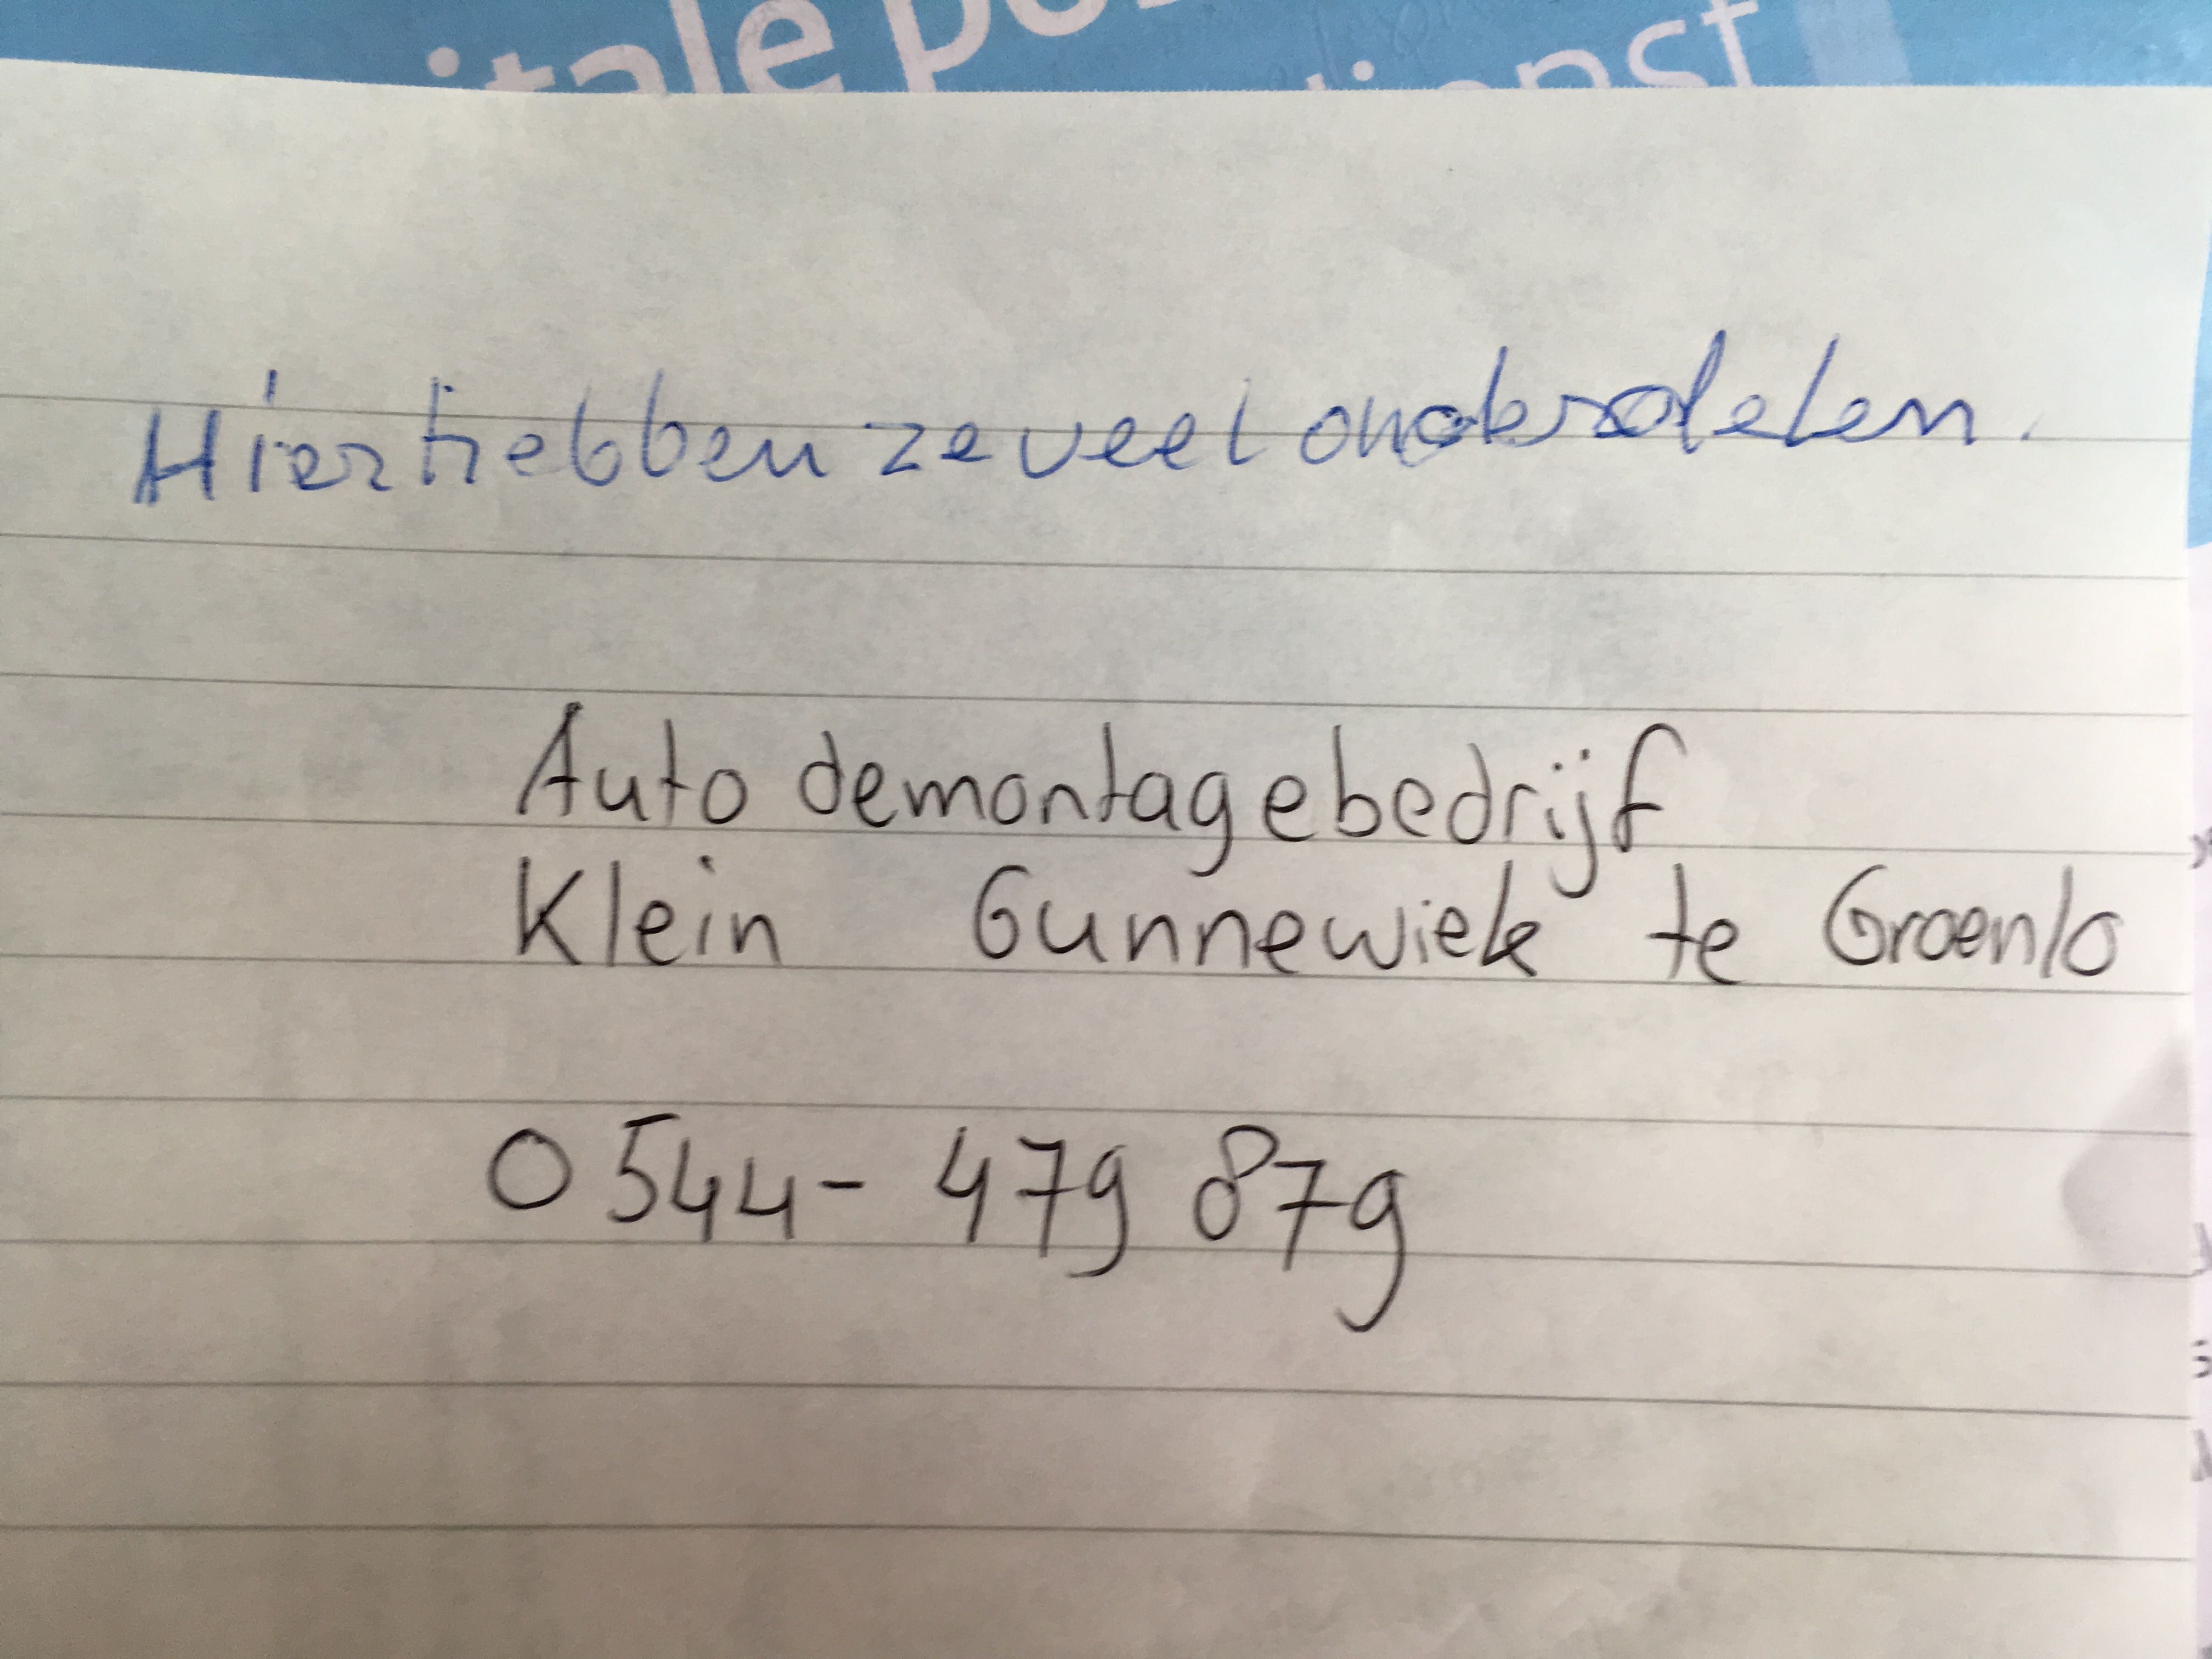 itale po
dienst
Hier hebben ze veel onderdelen.
Auto demontagebedrijf
Klein Gunnewiek te Groenlo
0544-479 879